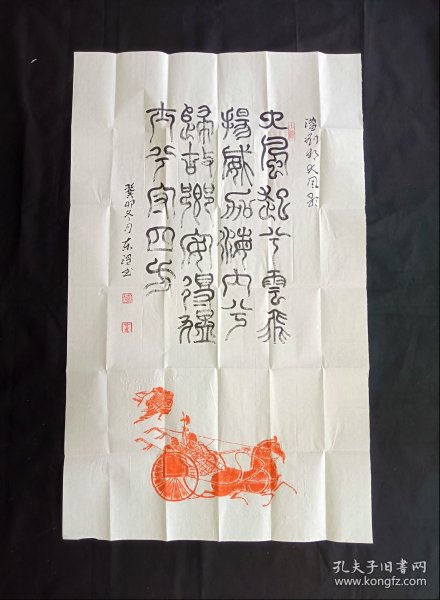 漢刘邦大风歌
大風起兮雲飛
揚威加海内兮
歸故鄉安得猛
士兮守四方
癸卯冬月东书
孔夫子旧书网
www.kongfz.com